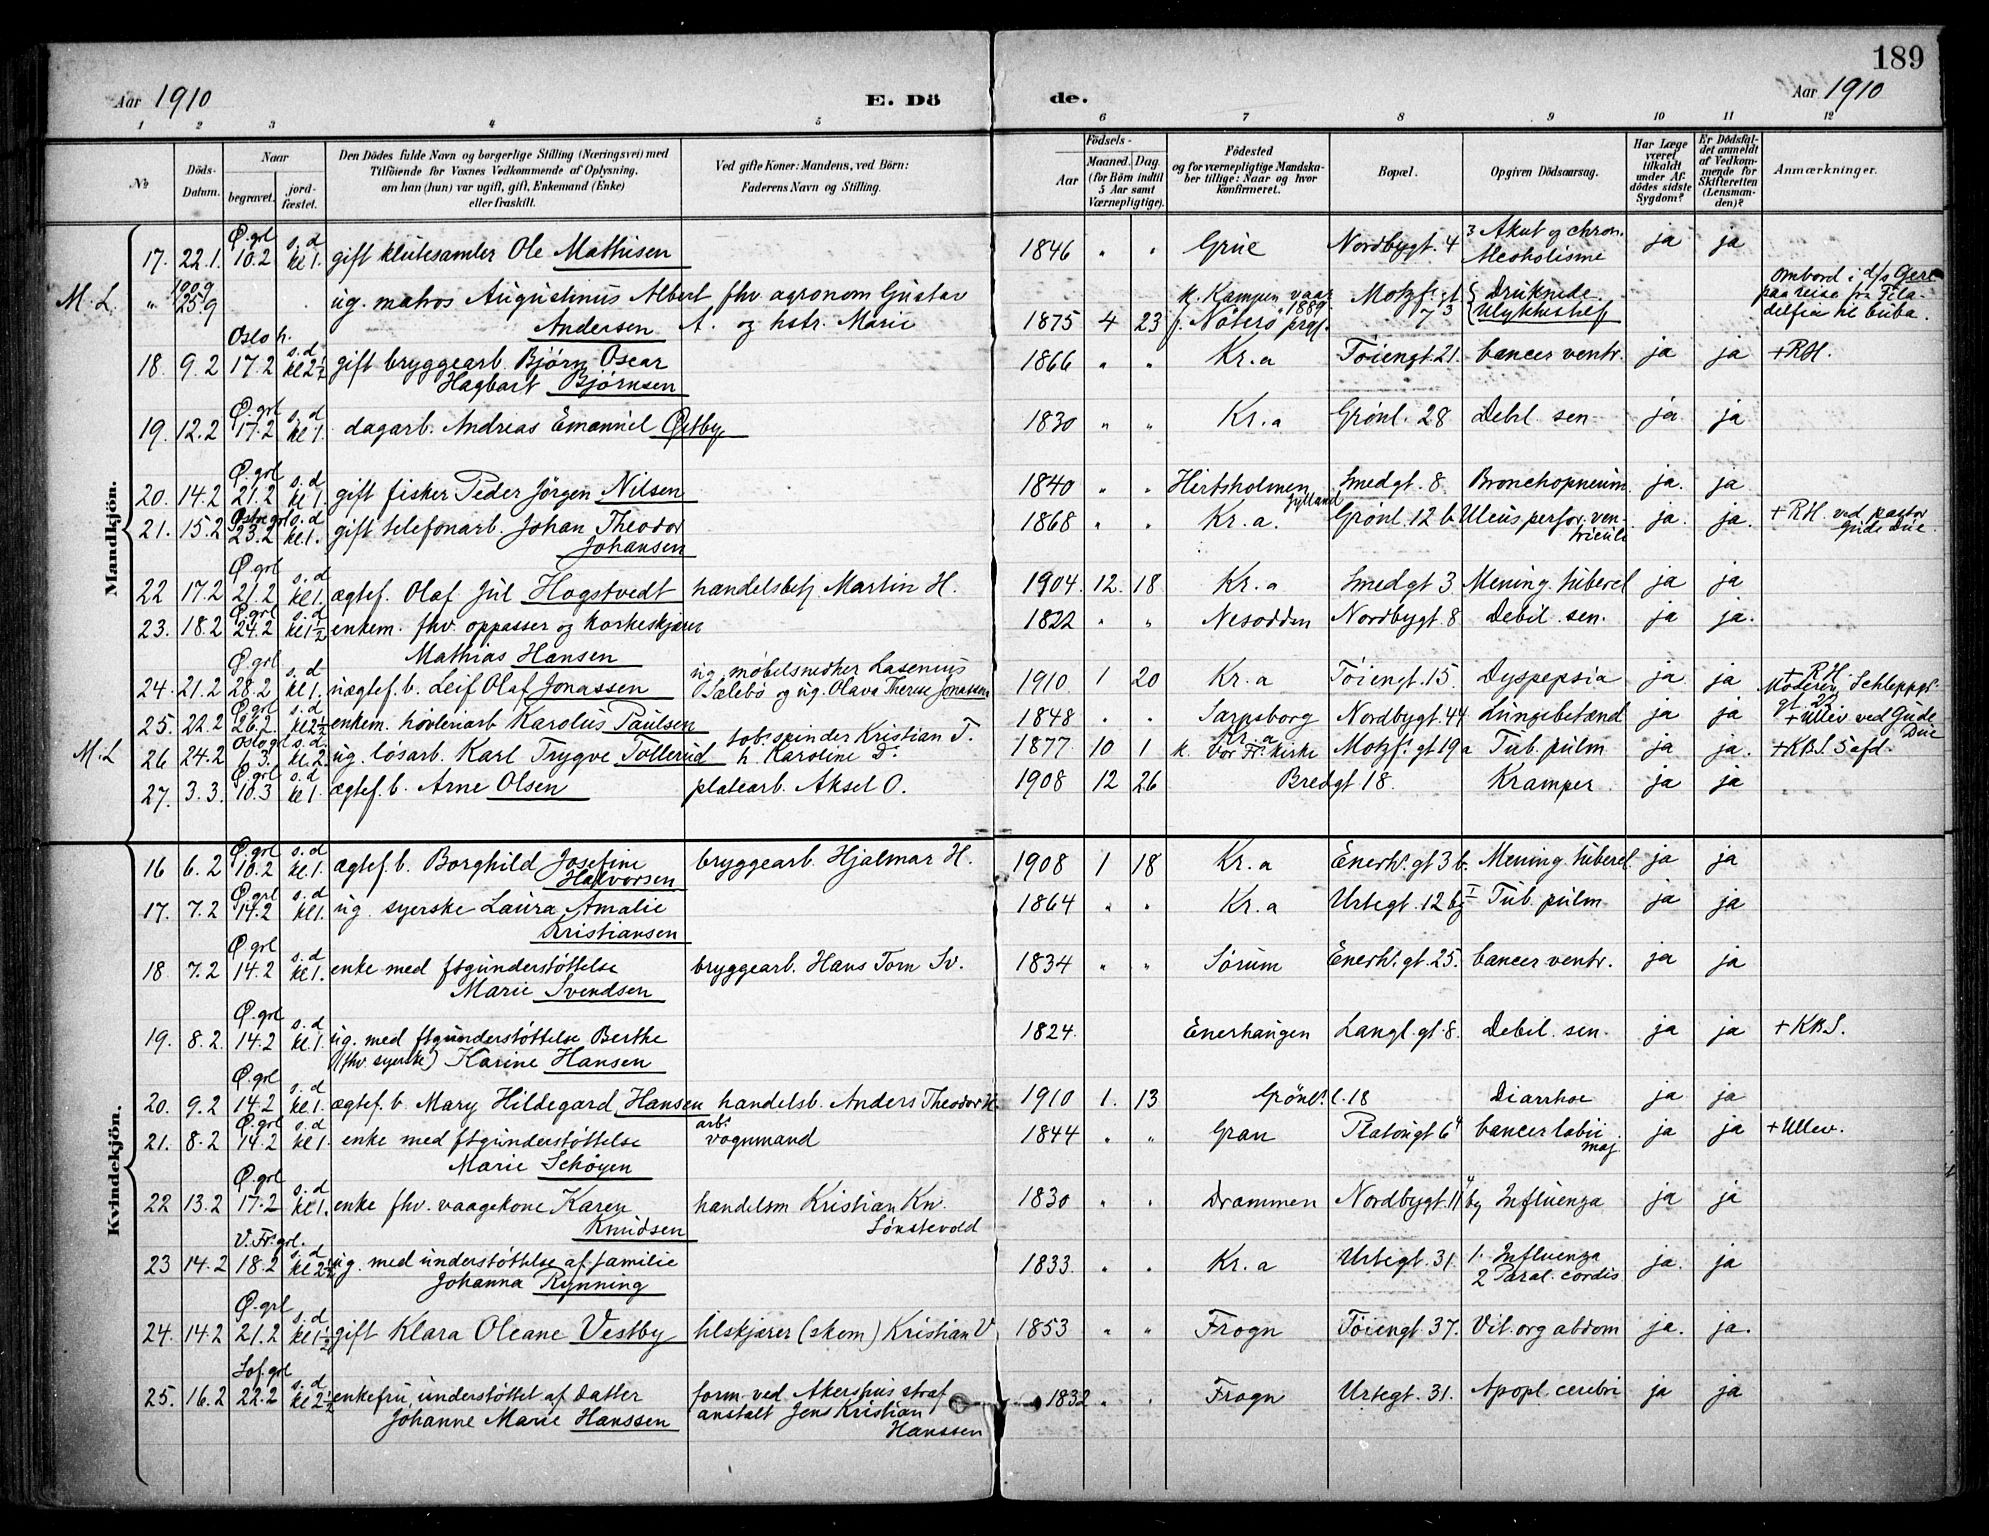 189
Aar 1910 E. Dö de. Aar 1910
1 2 3 4 5 6 7 8 9 10 11 12
No
Döds-Datum.
Naar
begravet.
jord-fæstet.
Den Dödes fulde Navn og borgerlige Stilling (Næringsvei) med
Tilföiende for Voxnes Vedkommende af Oplysning,
om han (hun) var ugift, gift, Enkemand (Enke)
eller fraskilt.
Ved gifte Koner: Mandens, ved Börn:
Faderens Navn og Stilling.
Födsels-
Aar
Maaned. Dag.
(for Börn indtil
5 Aar samt
Værnepligtige).
Födested
og for værnepligtige Mandska-
ber tillige: Naar og hvor
konfirmeret.
Bopæl.
Opgiven Dödsaarsag.
Har Læge
været
tilkaldt
under Af-
dödes sidste
Sygdom?
Er Dödsfal-
det anmeldt
af Vedkom-
mende for
Skifteretten
(Lensman-
den)?
Anmærkninger.
Mandkjön.
17. 22.1. Ø.grl 10.2 s.d kl 1. gift klutesamler Ole Mathisen 1846 " " Grue Nordbygt. 4 3 Akut og chron. Alcoholisme ja ja
M.L. " 1909 25.9 ug. matros Augustinus Albert Andersen fhv agronom Gustav A. og hstr. Marie 1875 4 23 k. Kampen vaar 1889 f. Nøterø prgj. Motzf.s gt 7 3 Druknede. Ulykkestilf ombord i d/s Gere paa reise fra Fila- delfia til Cuba.
18. 9.2 Oslo h. 17.2 s.d kl 2½ gift bryggearb. Bjørn Oscar Hagbart Bjørnsen 1866 " " Kr.a Töiengt. 21. Cancer ventr. ja ja + RH.
19. 12.2 Ø.grl 17.2 s.d kl 1. dagarb. Andreas Emanuel Østby 1830 " " Kr.a Grønl. 28 Debil. sen. ja ja
20. 14.2 Ø.grl 21.2 s.d kl 1. gift fisker Peder Jörgen Nilsen 1840 " " Hirtsholmen Jylland Smedgt. 8. Bronchopneum. ja. ja
21. 15.2 Østre grl 23.2 s.d kl 1. gift telefonarb. Johan Theodor Johansen 1868 " " Kr.a. Grønl. 12 b. Ulcus perfor. ven- triculi ja. ja. + RH. ved pastor Gude Due.
22 17.2 Ø.grl 21.2 s.d kl 1. ægtef. Olaf Jul Hogstvedt handelsbetj Martin H. 1904. 12. 18 Kr.a Smedgt 3 Mening. tubercl ja ja
23. 18.2 Ø.grl 24.2 s.d kl 1½ enkem. fhv. oppasser og korkeskjærer Mathias Hansen 1822 " " Nesodden Nordbygt. 8 Debil. sen. ja ja.
24. 21.2 Ø.grl 28.2 s.d kl 1. uægtef. b. Leif Olaf Jonassen ug. møbelsnedker Lasenius Sælebö og ug. Olava Therese Jonassen 1910 1 20 Kr.a Töiengt. 15. Dyspepsia ja ja + RH. Moderen, Schleppgr. gt. 22
25. 22.2 Ø.grl 26.2. s.d kl 2½ enkem. høvleriarb Karolus Paulsen 1848 . . Sarpsborg Nordbygt. 44 Lungebetænd ja ja + Ullev ved Gude Due
M.L 26 24.2 Oslo grl 1.3. s.d kl. 2. ug. lösarb. Karl Trygve Tollerud tob.spinder Kristian T. h. Karoline D. 1877 10 1 Kr.a k. Vor Fr.s kirke Motzf.s gt 19 a Tub. pulm ja ja. + KBS. 5 afd.
27. 3.3. Ø.grl 10.3 s.d kl 1. ægtef. b. Arne Olsen platearb. Aksel O. 1908 12 26 Bredgt 18. Kramper ja ja
Kvindekjön.
16 6.2 Ø.grl 10.2 s.d kl 1. ægtef. b. Borghild Josefine Halvorsen bryggearb. Hjalmar H. 1908 1 18 Kr.a Enerh.s gt 3 b. Mening. tubercl ja ja
17. 7.2 Ø.grl 14.2 s.d kl 1. ug. syerske Laura Amalie Kristiansen 1864 " " Kr.a Urtegt. 12 bg I Tub. pulm ja ja
18. 7.2 Ø.grl 14.2 s.d kl 1. enke med ftgunderstöttelse Marie Svendsen bryggearb. Hans Torn Sv. 1834 " " Sörum Enerh.s gt. 25. Cancer ventr. ja ja
19. 8.2. Ø.grl 14.2 s.d kl 1. ug. med ftgunderstöttelse Berthe (fhv. syerske) Karine Hansen 1824. Enerhaugen Langl. gt. 8. Debil. sen. ja ja + KBS.
20. 9.2 Ø.grl 14.2 s.d kl 1. ægtef. b. Mary Hildegard Hansen handelsb. Anders Theodor H. 1910 1. 13 Grönl.s l. 18 Diarrhoe ja ja
21. 8.2 Ø.grl 14.2 s.d kl 1. enke med ftgunderstöttelse Marie Schöyen arb.s vognmand 1844 " " Gran Platougt 6 4 Cancer labii maj. ja ja + Ullev.
22 13.2 Ø.grl 17.2 s.d kl 1. enke fhv. vaagekone Karen Knudsen handelsm Kristian Kn. Lönstevold 1830 " " Drammen Nordbygt. 11 bg Influenza ja ja
23 14.2 V.Fr.s grl. 18.2 s.d kl 2½ ug. med understöttelse af familie Johanna Rynning 1833 . . Kr.a Urtegt. 31. 1. Influenza 2 Paral. cordis ja. ja
24. 14.2 Ø.grl 21.2 s.d kl 1½ gift Klara Oleane Vestby tilskjærer (skom) Kristian V 1853 " " Frogn Töiengt. 37. Vit. org abdom ja. ja.
25. 16.2 Sof.grl 22.2 s.d kl 2½ enkefru, understöttet af datter Johanne Marie Hanssen form. ved Akershus straf anstalt Jens Kristian Hanssen 1832 " . Frogn Urtegt. 31. Apopl. cerebri ja ja